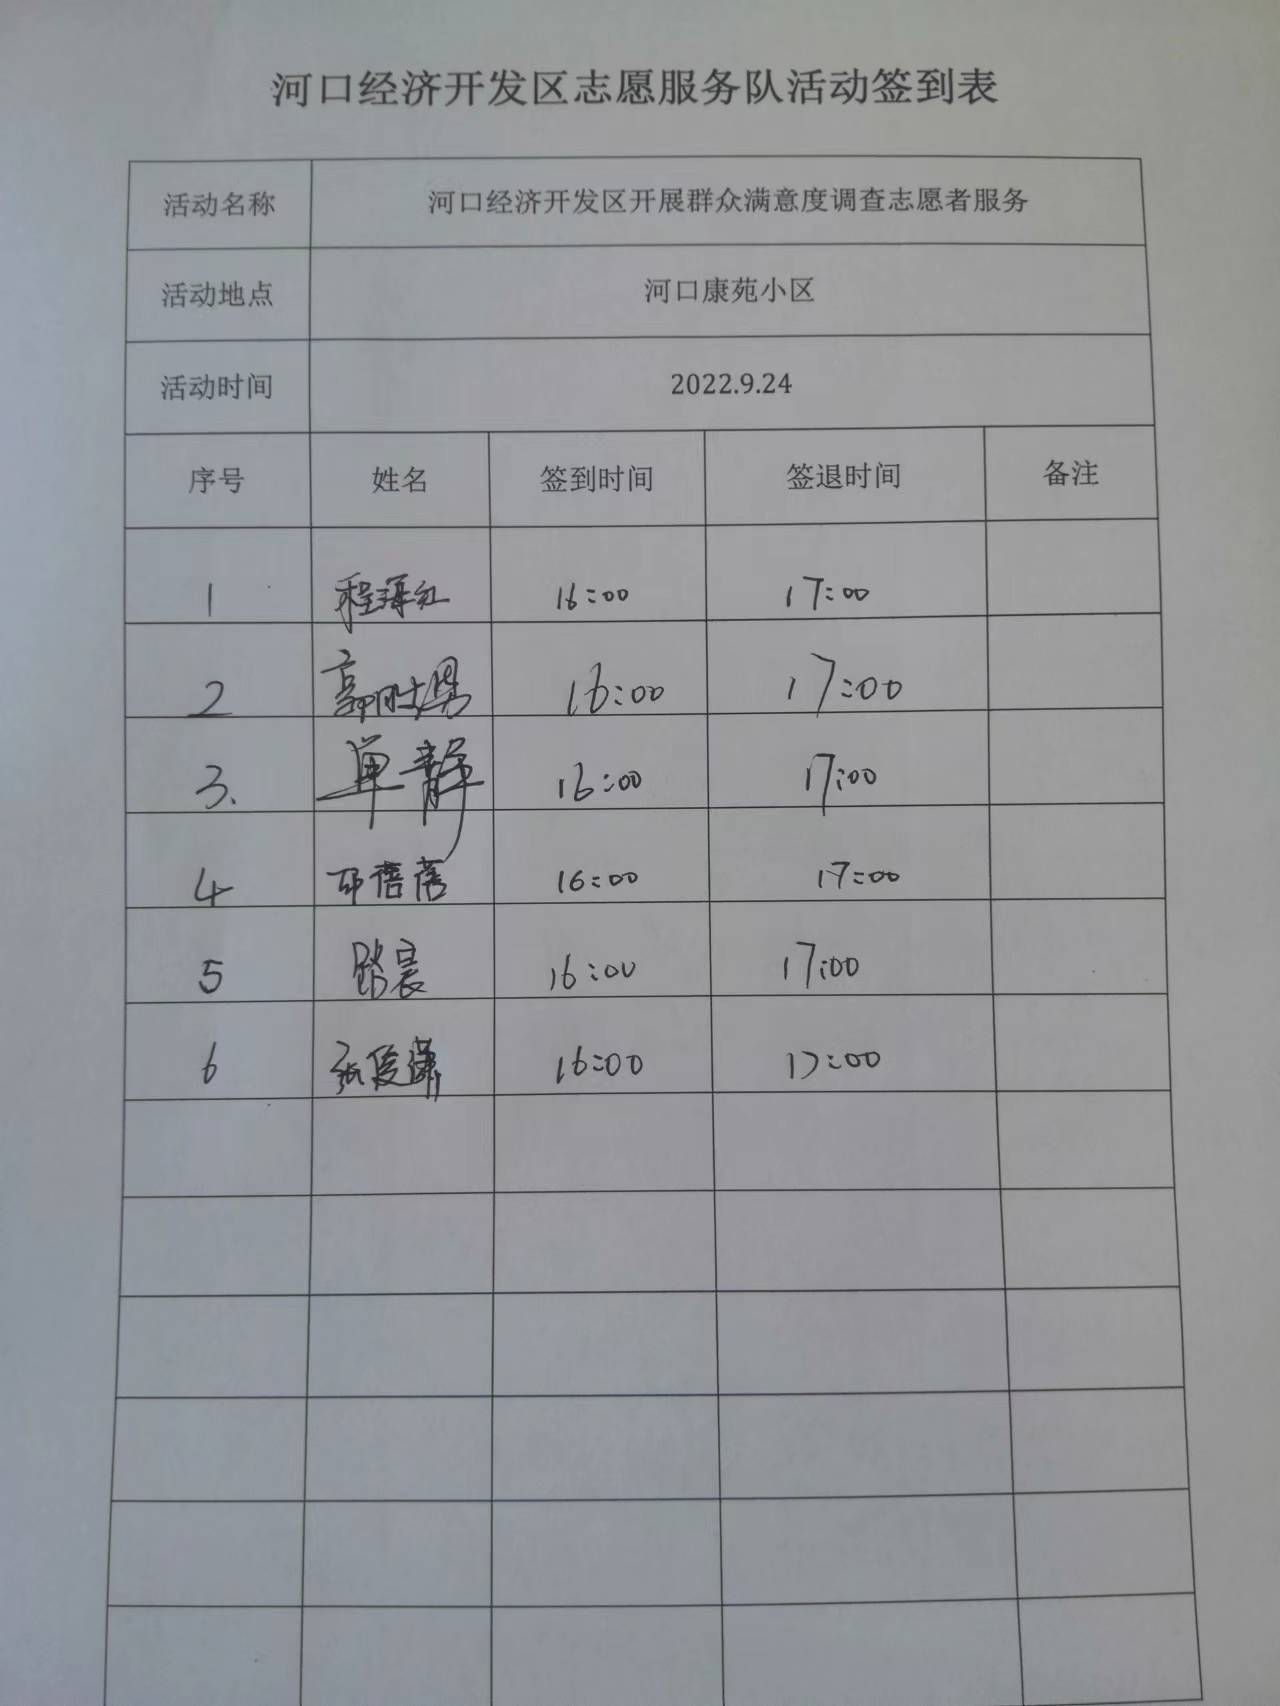 河口经济开发区志愿服务队活动签到表
活动名称 河口经济开发区开展群众满意度调查志愿者服务
活动地点 河口康苑小区
活动时间 2022.9.24
序号 姓名 签到时间 签退时间 备注
1 程海红 16:00 17:00
2 16:00 17:00
3、 单静 16:00 17:00
4 蓓蓓 16:00 17:00
5 路晨 16:00 17:00
6 张俊潇 16:00 17:00